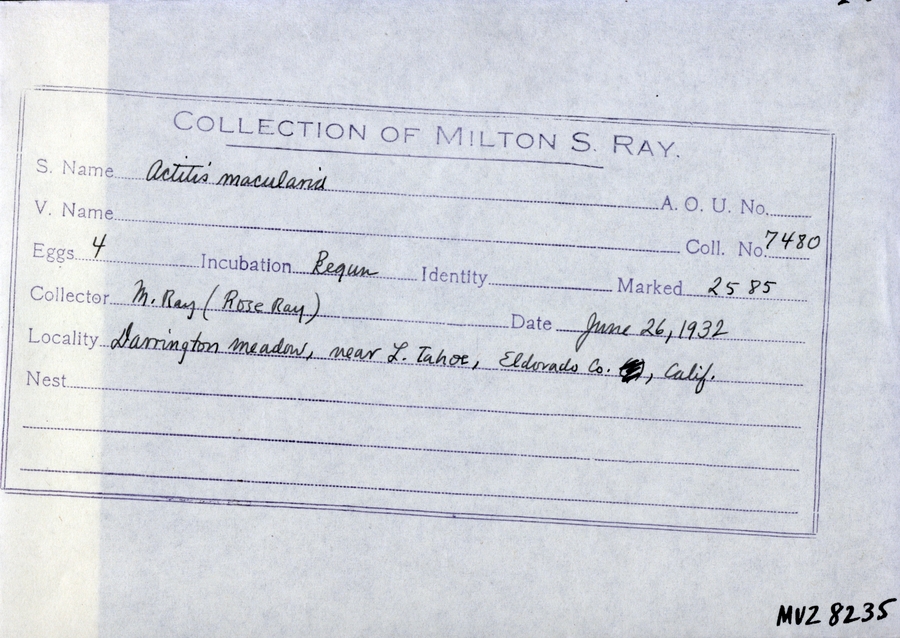 COLLECTION OF MILTON S. RAY.
S. Name Actitis macularia A. O. U. No.
V. Name Coll. No. 7480
Eggs 4 Incubation Begun Identity Marked 2585
Collector M. Ray (Rose Ray) Date June 26, 1932
Locality Darrington meadow, near L. Tahoe, Eldorado Co. , Calif.
Nest
MVZ 8235